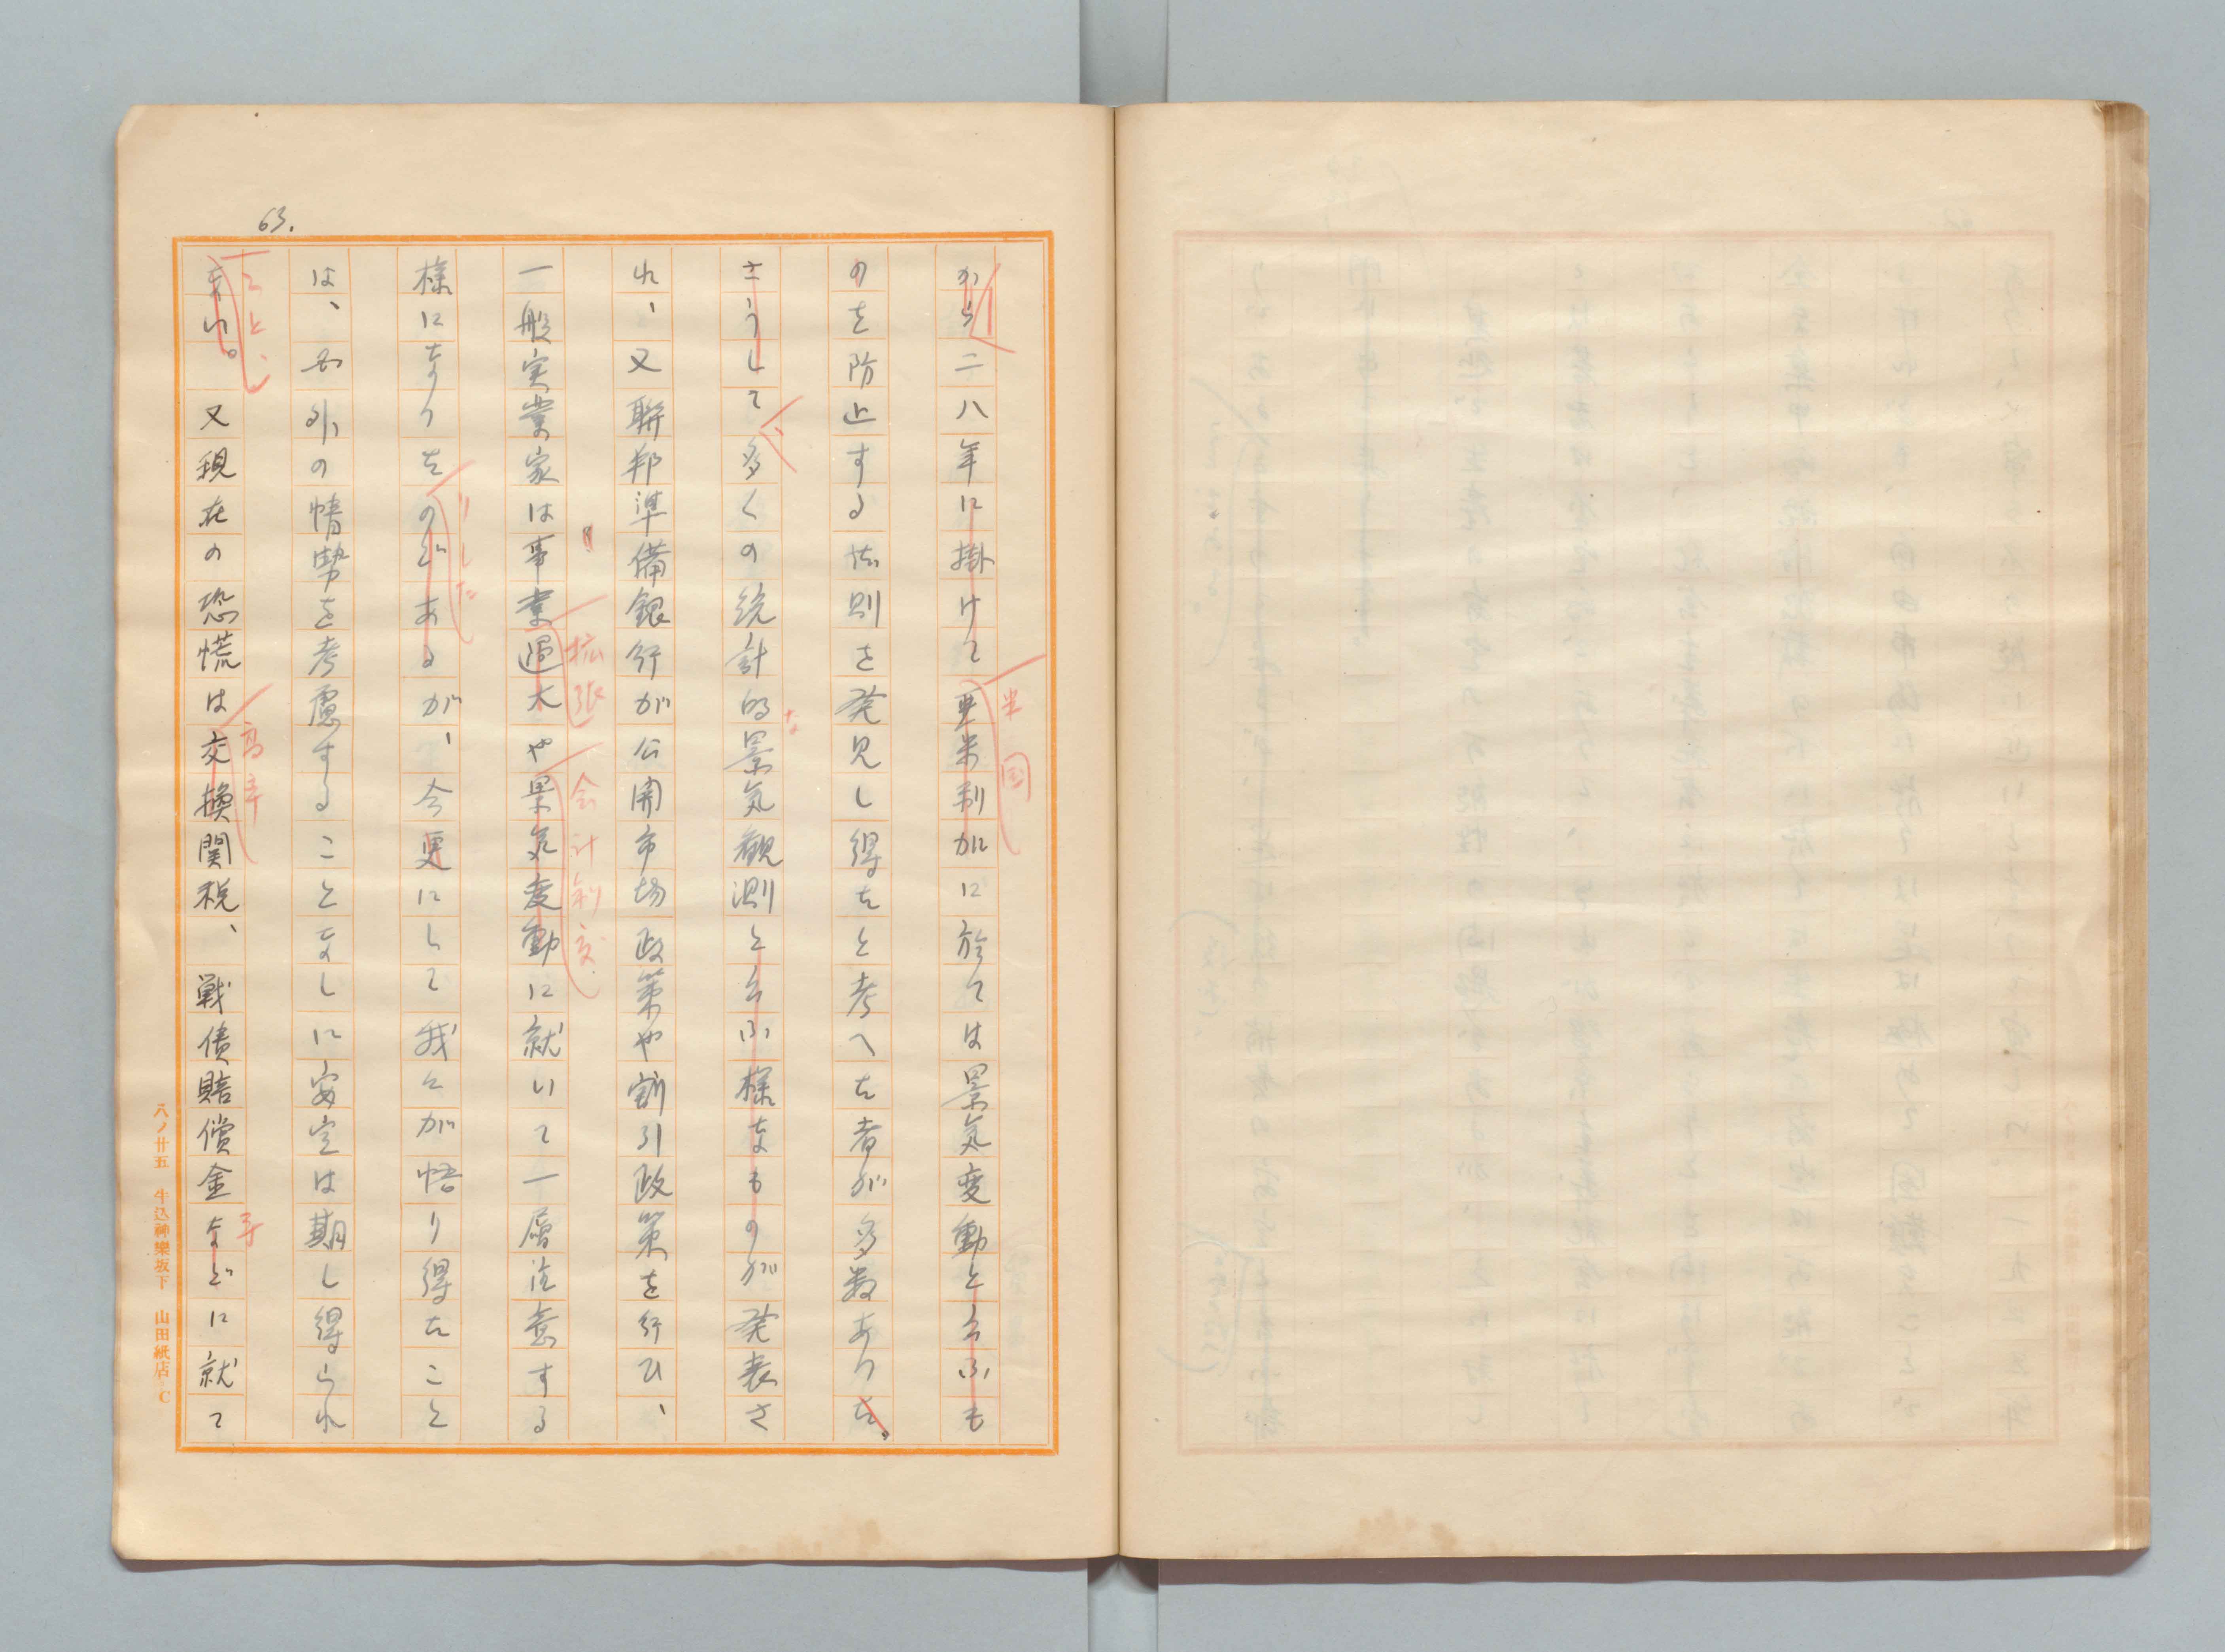 63.
から二八年に掛けて亜米利加に於ては景気変動と云ふも
米国
のを防止する法則を発見し得たと考へた者が多数あつた。
さうして多くの統計的景気観測と云ふ様なものが発表さ
、
な
れ、又聯邦準備銀行が公開市場政策や割引政策を行ひ、
一般実業家は事業過大や景気変動に就いて一層注意する
拡張
会計制度
様になつたのであるが、今更にして我々が悟り得たこと
りした
は、内外の情勢を考慮することなしに安定は期し得られ
ない。又現在の恐慌は交換関税、戦債賠償金などに就て
高率
等
八ノ廿五 牛込神樂坂下 山田紙店 C